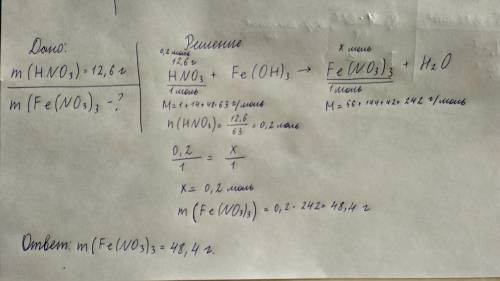 Дано:
m(HNO3)=12,6 г
m(Fe(NO3)3 -?
Решение
0,2 моль
12,6 г
x моль
HNO3 + Fe(OH)3 → Fe(NO3)3 + H2O
1 моль
1 моль
M=1+14+48=63 г/моль
M=56+144+42=242 г/моль
n(HNO3)=12,6/63=0,2 моль
0,2/1 = x/1
x=0,2 моль
m(Fe(NO3)3)=0,2·242=48,4 г
Ответ: m(Fe(NO3)3=48,4 г.